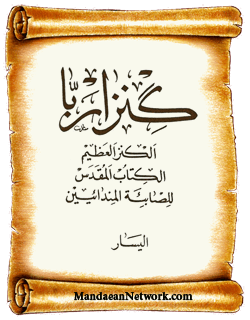 كنزا ربّا
الكنز العظيم
الكتاب المقدس
للصابئة المندائيين
اليسار
MandaeanNetwork.com